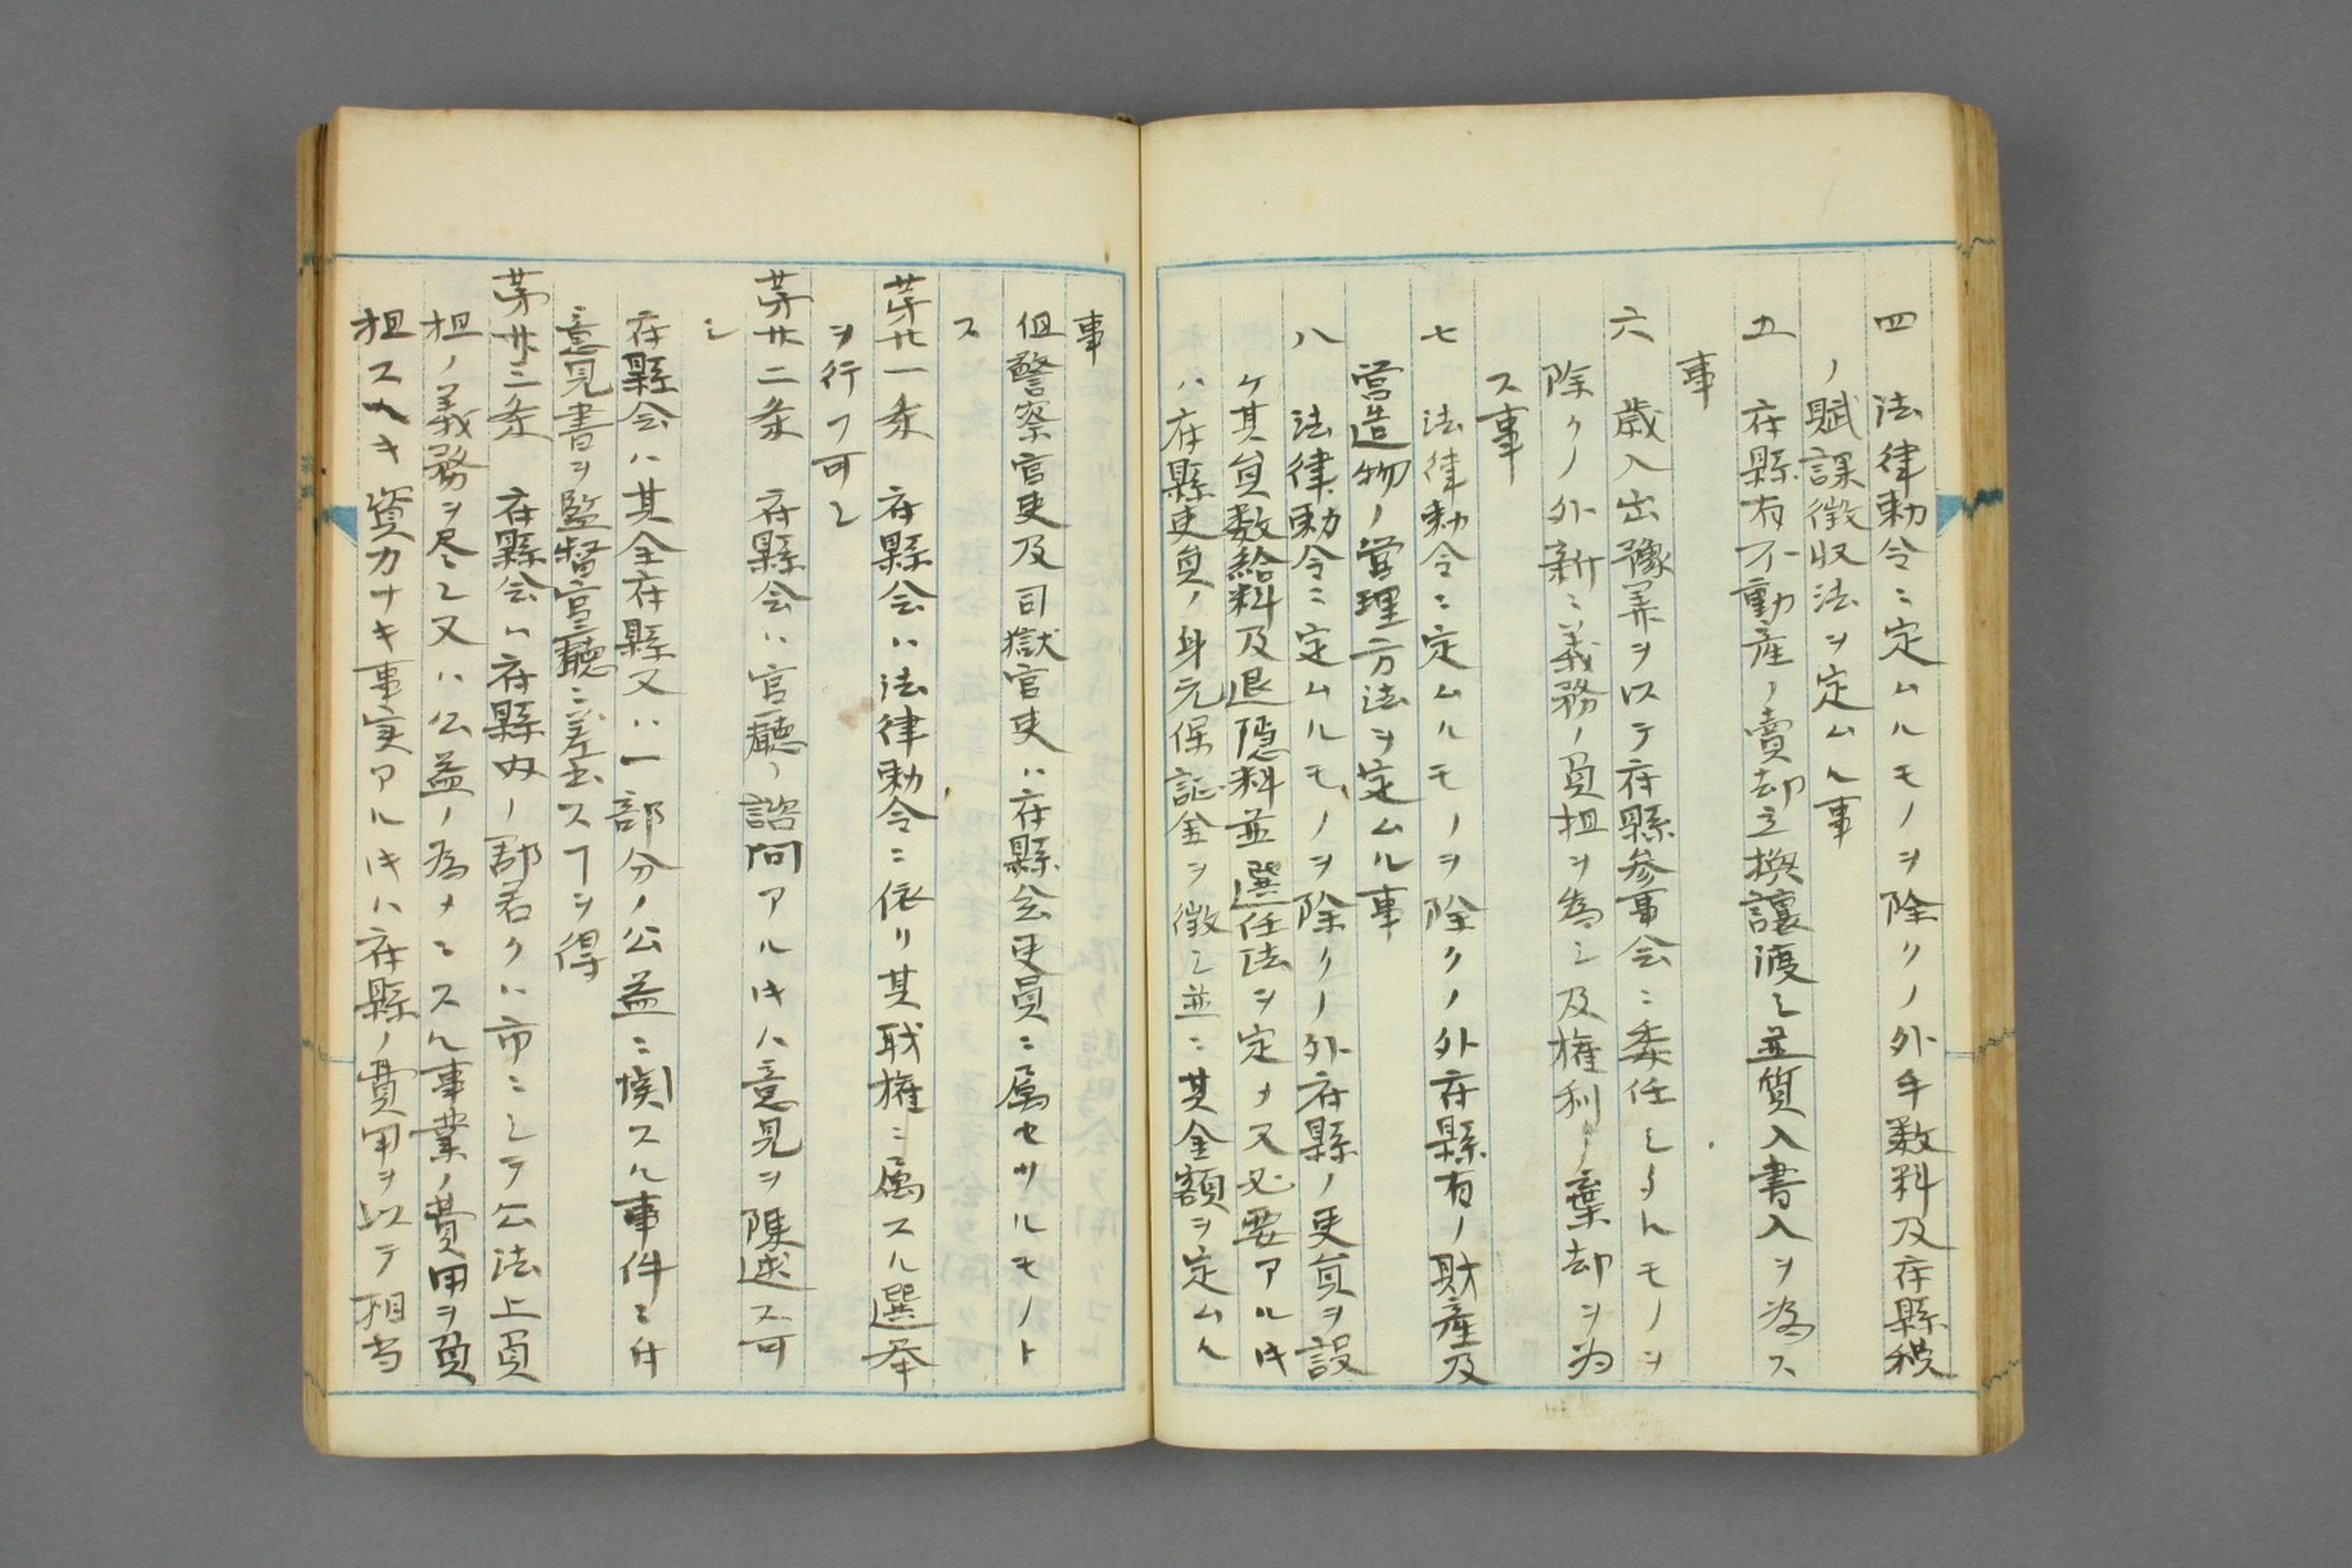 四　法律勅令ニ定ムルモノヲ除クノ外手数料及府縣税
ノ賦課徴収法ヲ定ムル事
五　府縣有不動産ノ賣却交換譲渡シ並質入書入ヲ為ス
事
六　歳入出豫算ヲ以テ府縣参事会ニ委任シタルモノヲ
除クノ外新ニ義務ノ負担ヲ為シ及権利ノ棄却ヲ為
ス事
七　法律勅令ニ定ムルモノヲ除クノ外府縣有ノ財産及
営造物ノ管理方法ヲ定ムル事
八　法律勅令ニ定ムルモノヲ除クノ外府縣ノ吏員ヲ設
ケ其員数給料及退隠料並選任法ヲ定メ又必要アルトキ
ハ府縣吏員ノ身元保証金ヲ徴シ並ニ其金額ヲ定ムル
事
但警察官吏及司獄官吏ハ府縣会吏員ニ属セサルモノト
ス
苐廿一条　府縣会ハ法律勅令ニ依リ其职権ニ属スル選挙
ヲ行フ可シ
苐廿二条　府縣会ハ官廳ノ諮問アルトキハ意見ヲ陳述ス可
シ
府縣会ハ其全府縣又ハ一部分ノ公益ニ関スル事件ニ付
意見書ヲ監督官廳ニ差出スヿヲ得
苐廿三条　府縣会ハ府縣内ノ郡若クハ市ニシテ公法上負
担ノ義務ヲ尽シ又ハ公益ノ為メニスル事業ノ費用ヲ負
担スヘキ資力ナキ事実アルトキハ府縣ノ費用ヲ以テ相当